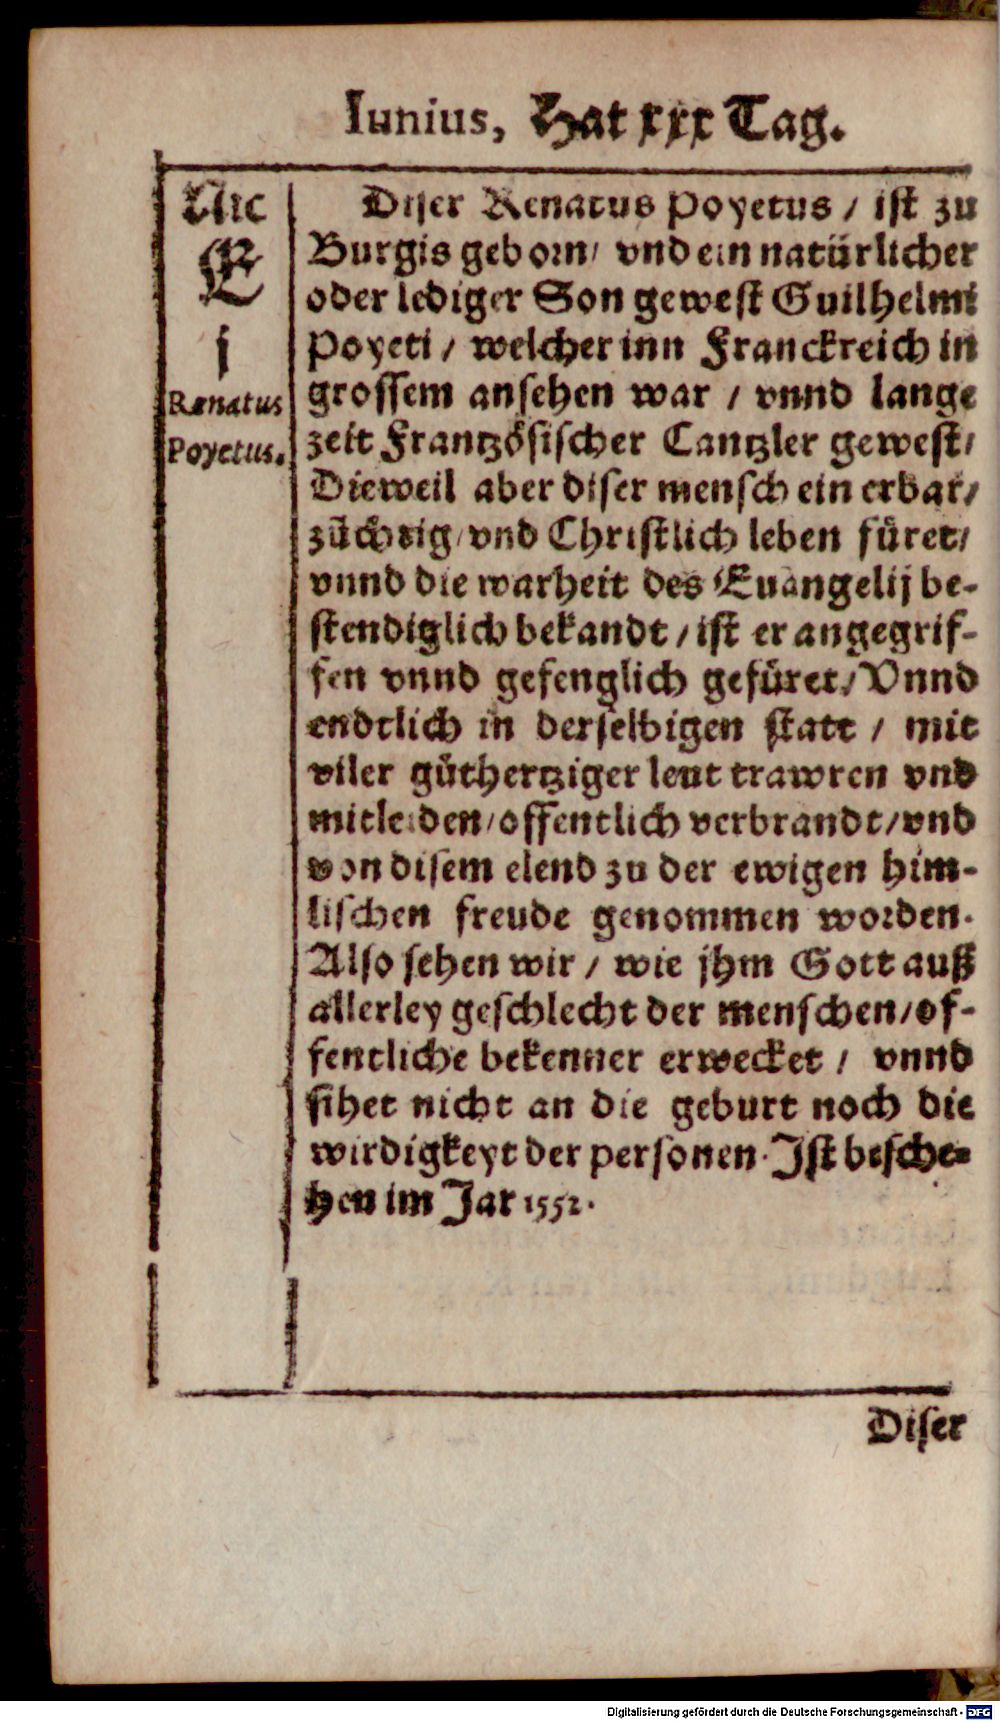 Iunius, Hat xxx Tag.
Nic
E
j
Renatus
Poyetus.
Diser Renatus Poyetus / ist zu
Burgis geborn / vnd ein natürlicher
oder lediger Son gewest Guilhelmi
Poyeti / welcher inn Franckreich in
grossem ansehen war / vnnd lange
zeit Frantzösischer Cantzler gewest /
Dieweil aber diser mensch ein erbar /
züchtig / vnd Christlich leben füret /
vnnd die warheit des Euangelij be-
stendiglich bekandt / ist er angegrif-
fen vnnd gefenglich gefüret / Vnnd
endtlich in derselbigen statt / mit
viler gůthertziger leut trawren vnd
mitleiden / offentlich verbrandt / vnd
von disem elend zu der ewigen him-
lischen freude genommen worden.
Also sehen wir / wie jhm Gott auß
allerley geschlecht der menschen / of-
fentliche bekenner erwecket / vnnd
sihet nicht an die geburt noch die
wirdigkeyt der personen. Ist besche-
hen im Jar 1552.
Diser
Digitalisierung gefördert durch die Deutsche Forschungsgemeinschaft - DFG